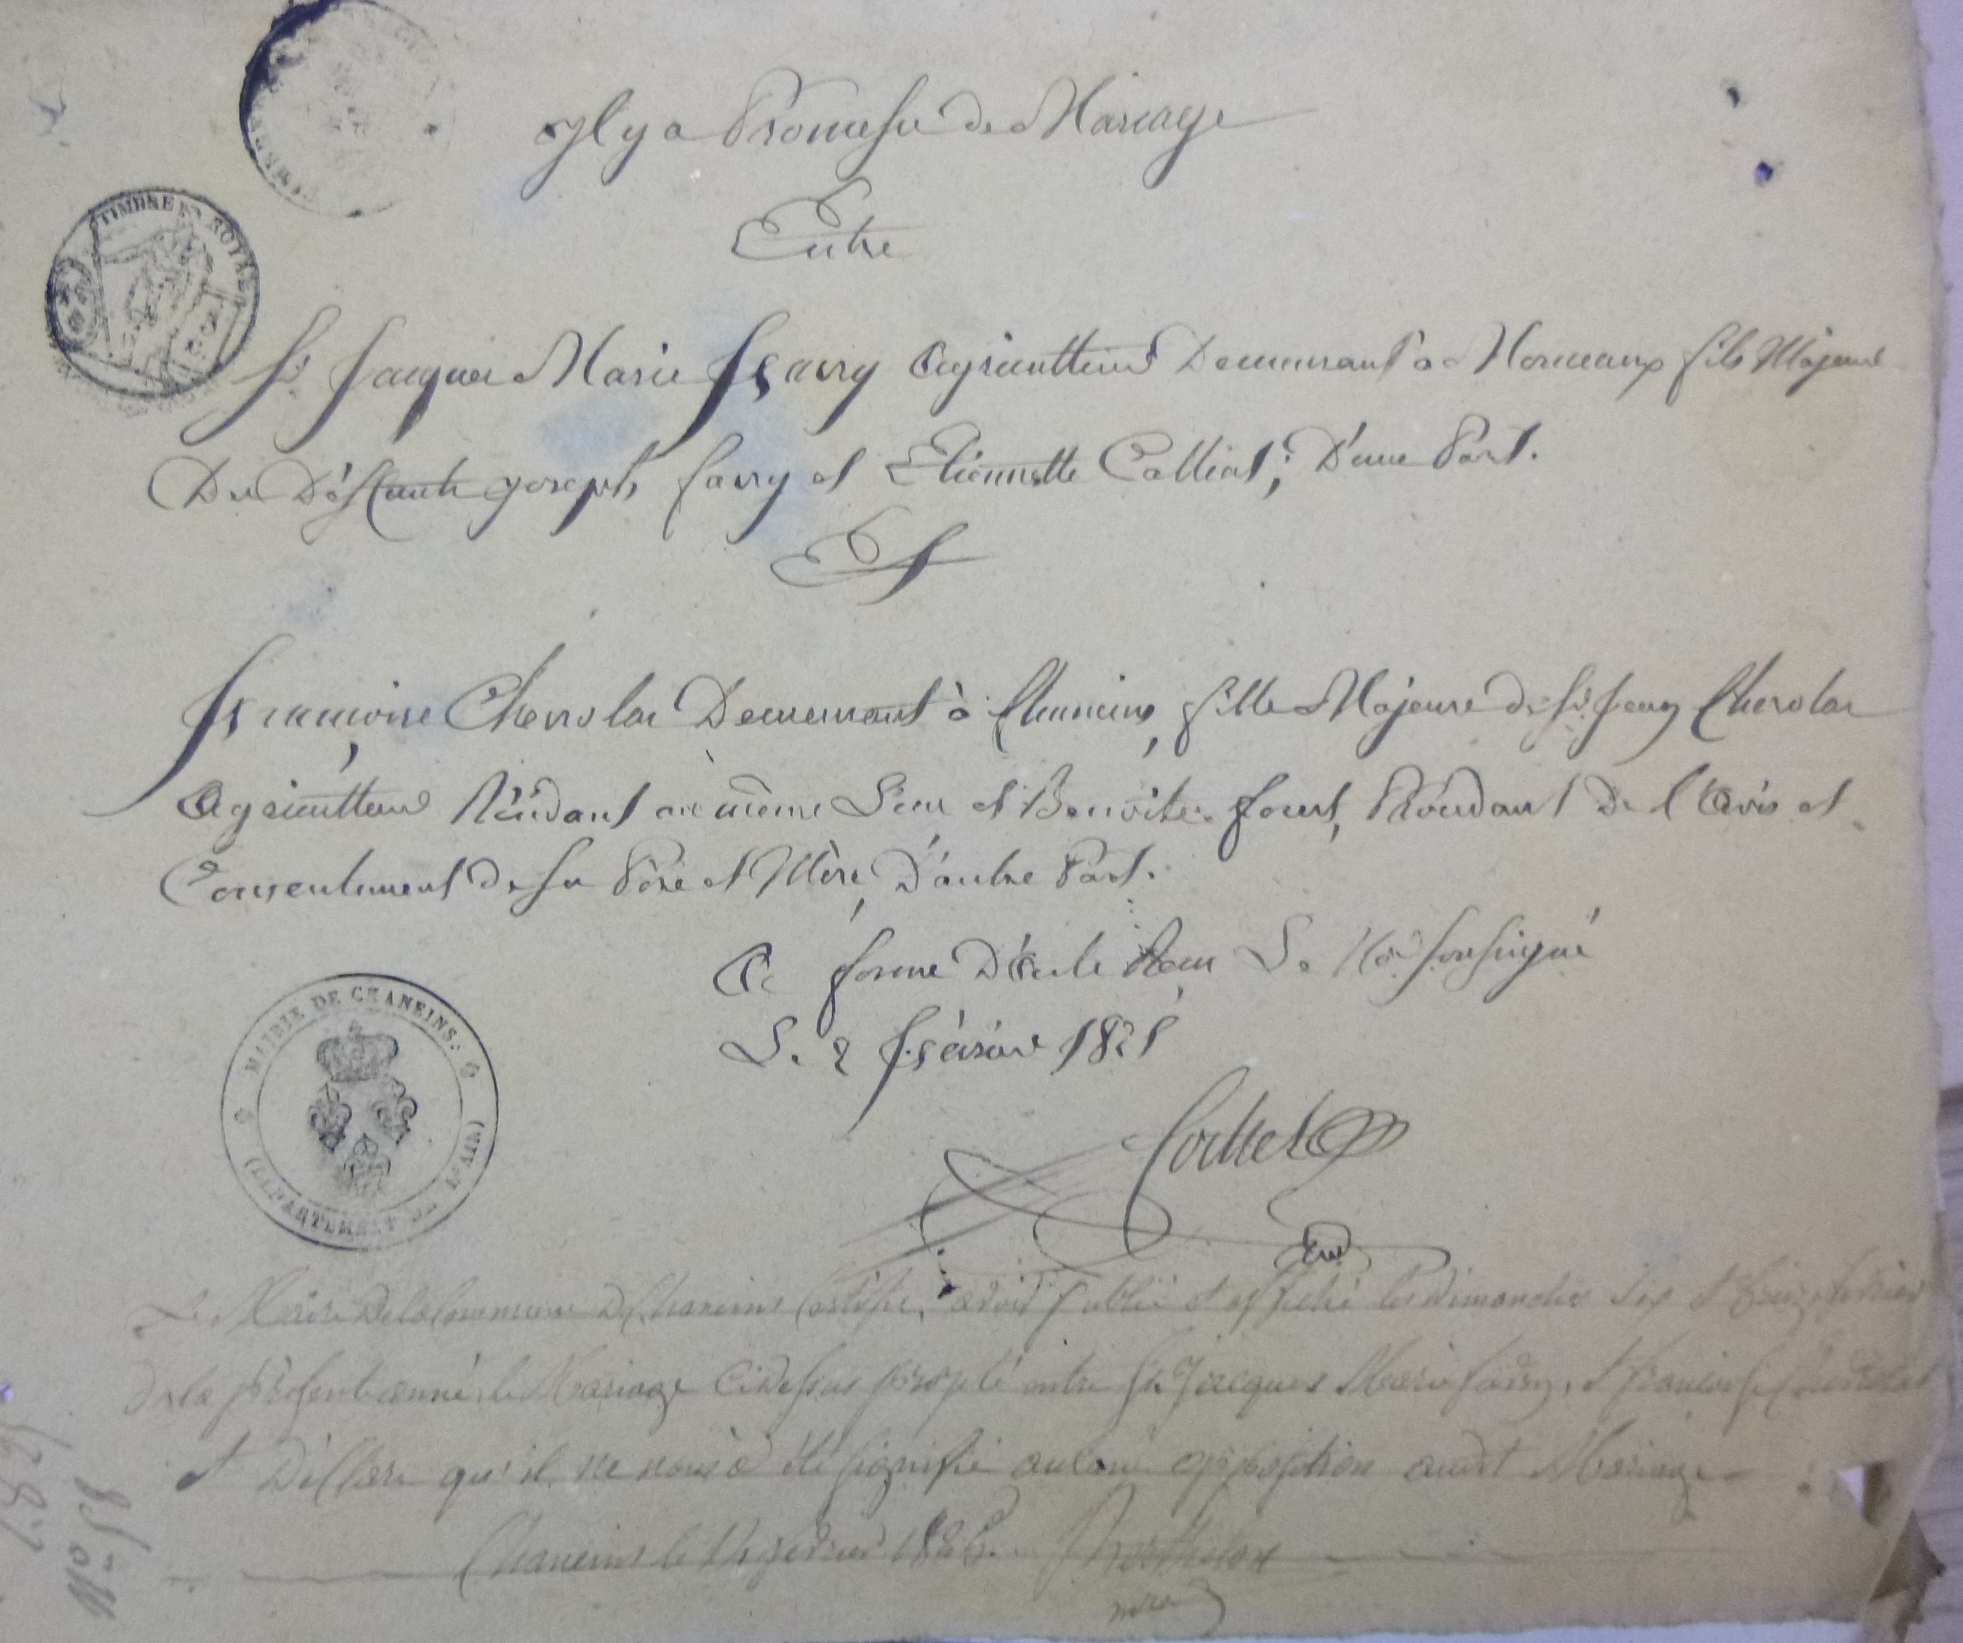 TIMBRE ROYAL
Il y a Promesse de Mariage
Entre
Sr. Jacques Marie Favry Agriculteur Demeurant à fils Majeur
De Défunts joseph favry et Etiennette Calliat; D'une Part.
Et
Françoise Cherolar Demeurant à Chaneins, fille Majeure de Sr. Jean Cherolar
Agriculteur Résidant au même Lieu et Benoite fourt, Procédant De l'Avis et
Consentement de Ses Père et Mère, D'autre Part.
forme Le Soussigné
Le 2 février
MAIRIE DE CHANEINS.
(DEPARTEMENT DE L'AIN)
Le Maire De la Commune De Chaneins Certifie, avoir publié et affiché les dimanches Six et treize février
De la présente année, le Mariage Cidessus projeté entre Sr. Jacques Marie favry, et francoise Cherolar
et Déclare qu'il ne nous a été signifié aucune opposition audit Mariage
Chaneins le février